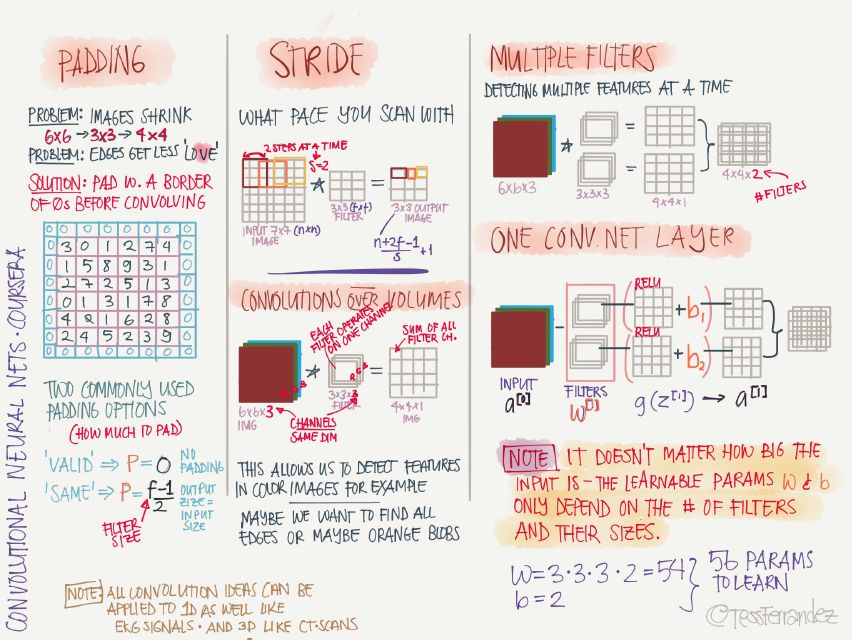 CONVOLUTIONAL NEURAL NETS · COURSERA
PADDING
PROBLEM: IMAGES SHRINK
6x6 → 3x3 → 4x4
PROBLEM: EDGES GET LESS 'LOVE'
SOLUTION: PAD W. A BORDER
OF 0s BEFORE CONVOLVING
0 0 0 0 0 0 0 0
0 3 0 1 2 7 4 0
0 1 5 8 9 3 1 0
0 2 7 2 5 1 3 0
0 0 1 3 1 7 8 0
0 4 2 1 6 2 8 0
0 2 4 5 2 3 9 0
0 0 0 0 0 0 0 0
TWO COMMONLY USED
PADDING OPTIONS
(HOW MUCH TO PAD)
'VALID' ⇒ P=0 NO
PADDING
'SAME' ⇒ P= f-1/2 OUTPUT
SIZE=
INPUT
SIZE
FILTER
SIZE
NOTE: ALL CONVOLUTION IDEAS CAN BE
APPLIED TO 1D AS WELL LIKE
EKG SIGNALS · AND 3D LIKE CT-SCANS
STRIDE
WHAT PACE YOU SCAN WITH
2 STEPS AT A TIME
S=2
* =
INPUT 7x7 (nxn)
IMAGE
3x3 (fxf)
FILTER
3x3 OUTPUT
IMAGE
n+2f-1/s +1
CONVOLUTIONS OVER VOLUMES
EACH
FILTER OPERATES
ON ONE CHANNEL
SUM OF ALL
FILTER CH.
R G B
* =
R G B
6x6x3
IMG
3x3x3
FILTER
4x4x1
IMG
CHANNELS
SAME DIM
THIS ALLOWS US TO DETECT FEATURES
IN COLOR IMAGES FOR EXAMPLE
MAYBE WE WANT TO FIND ALL
EDGES OR MAYBE ORANGE BLOBS
MULTIPLE FILTERS
DETECTING MULTIPLE FEATURES AT A TIME
* = =
6x6x3
3x3x3
4x4x1
4x4x2
# FILTERS
ONE CONV. NET LAYER
RELU
( + b1 )
RELU
( + b2 )
INPUT
a[0]
FILTERS
W[1]
g(z[1]) → a[1]
NOTE IT DOESN'T MATTER HOW BIG THE
INPUT IS - THE LEARNABLE PARAMS W & b
ONLY DEPEND ON THE # OF FILTERS
AND THEIR SIZES.
W=3·3·3·2=54 } 56 PARAMS
b=2 TO LEARN
@TessFerrandez